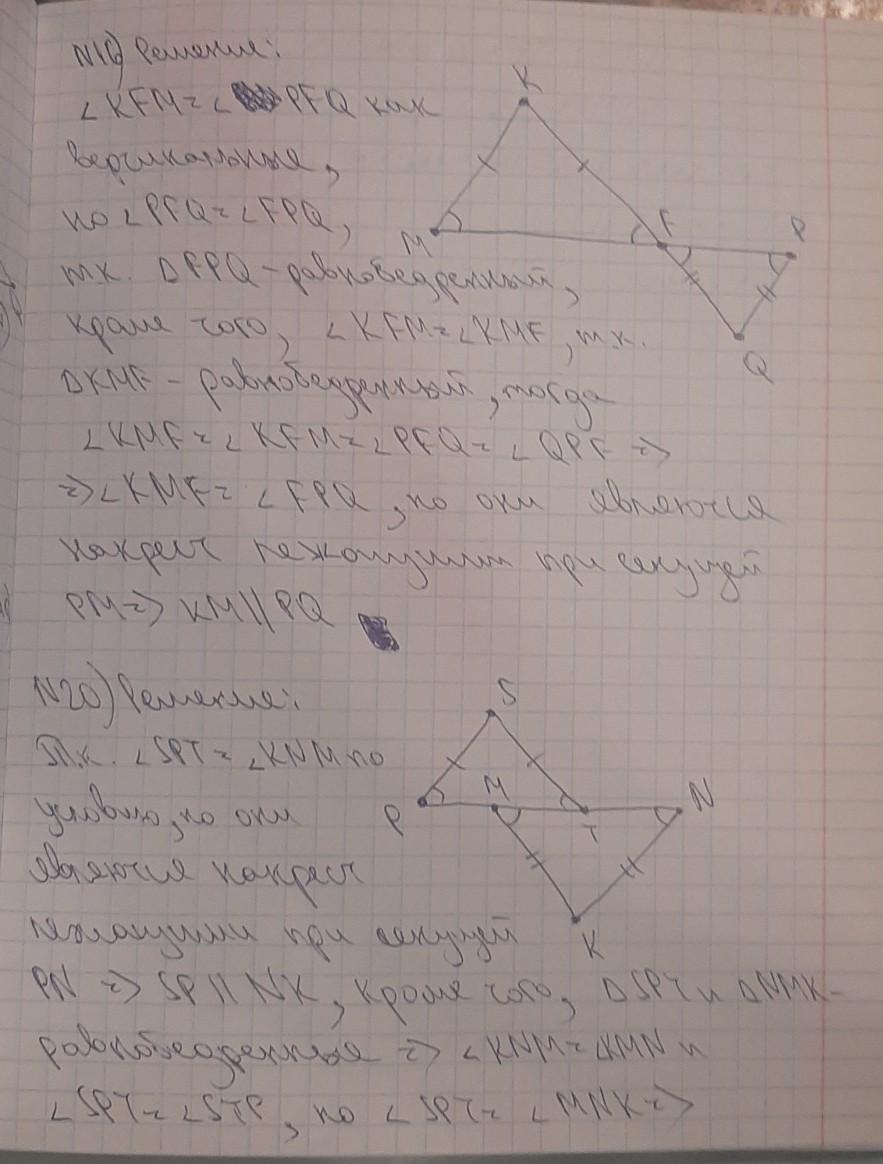 N19) Решение:
∠KFM = ∠PFQ как
вертикальные,
но ∠PFQ = ∠FPQ,
т.к. ΔFPQ - равнобедренный,
кроме того, ∠KFM = ∠KMF, т.к.
ΔKMF - равнобедренный, тогда
∠KMF = ∠KFM = ∠PFQ = ∠QPF =>
=> ∠KMF = ∠FPQ, но они являются
накрест лежащими при секущей
PM => KM || PQ
K
M
F
P
Q
N20) Решение:
Т.к. ∠SPT = ∠KNM по
условию, но они
являются накрест
лежащими при секущей
PN => SP || NK, кроме того, ΔSPT и ΔNMK -
равнобедренные => ∠KNM = ∠KMN и
∠SPT = ∠STP, но ∠SPT = ∠MNK =>
S
P
M
T
N
K